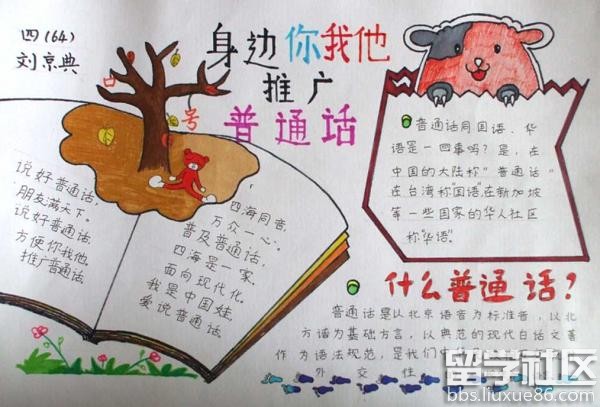 四(64)
刘京典
身边你我他
推广
普通话
号
说好普通话,
朋友满天下。
说好普通话
方便你我他
推广普通话,
四海同音,
万众一心。
普及普通话,
四海是一家。
面向现代化,
我是中国娃,
爱说普通话。
普通话同国语、华
语是一回事吗?是,在
中国的大陆称"普通话"
在台湾称"国语"在新加坡
等一些国家的华人社区
称"华语"。
什么普通话?
普通话是以北京语音为标准音,以北
方话为基础方言,以典范的现代白话文著
作为语法规范,是我们
外交性
留学社区
bbs.liuxue86.com